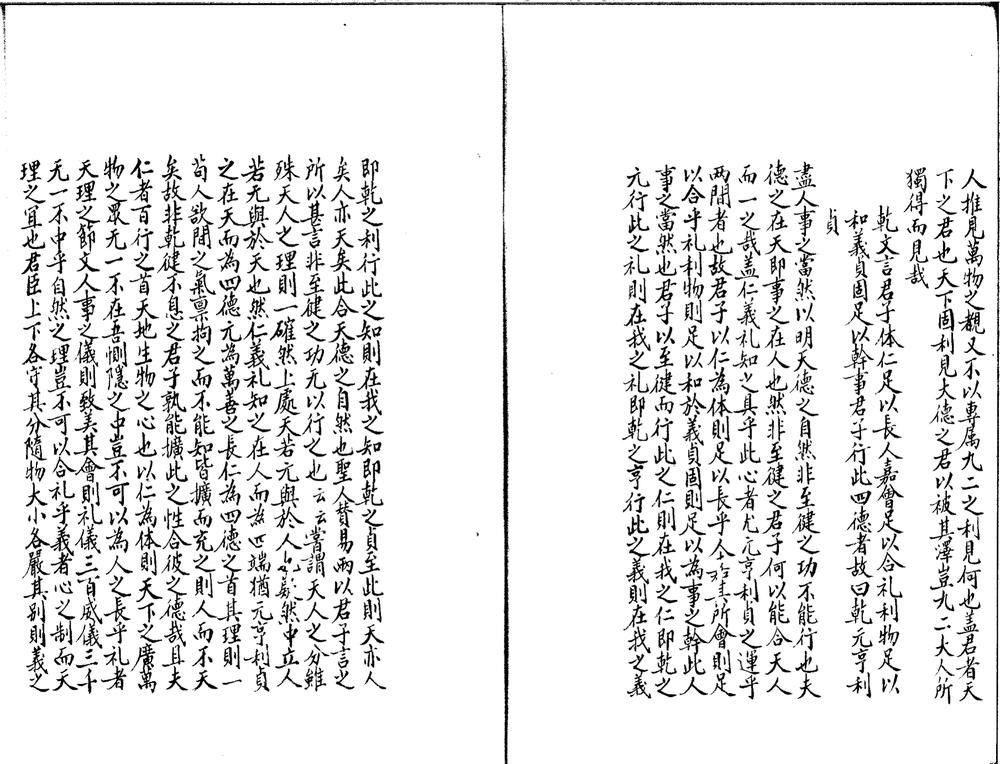 人推見萬物之覩又不以專属九二之利見何也盖君者天
下之君也天下固利見大德之君以被其澤豈九二大人所
獨得而見哉
乾文言君子体仁足以長人嘉會足以合礼利物足以
和義貞固足以幹事君子行此四德者故曰乾元亨利
貞
盡人事之當然以明天德之自然非至健之功不能行也夫
德之在天即事之在人也然非至健之君子何以能合天人
而一之哉盖仁義礼知之具乎此心者尤元亨利貞之運乎
两間者也故君子以仁為体則足以長乎人 其所會則足
以合乎礼利物則足以和於義貞固則足以為事之幹此人
事之當然也君子以至健而行此之仁則在我之仁即乾之
元行此之礼則在我之礼即乾之亨行此之義則在我之義
即乾之利行此之知則在我之知即乾之貞至此則天亦人
矣人亦天矣此合天德之自然也聖人賛易兩以君子言之
所以甚言非至健之功无以行之也云云嘗謂天人之分雖
殊天人之理則一確然上處天若元與於人 然中立人
若无與於天也然仁義礼知之在人而為四端猶元亨利貞
之在天而為四德元為萬善之長仁為四德之首其理則一
苟人欲間之氣禀拘之而不能知皆擴而充之則人而不天
矣故非乾健不息之君子孰能擴此之性合彼之德哉且夫
仁者百行之首天地生物之心也以仁為体則天下之廣萬
物之眾无一不在吾惻隱之中豈不可以為人之長乎礼者
天理之節文人事之儀則致美其會則礼儀三百威儀三千
无一不中乎自然之理豈不可以合礼乎義者心之制而天
理之宜也君臣上下各守其分隨物大小各嚴其别則義之